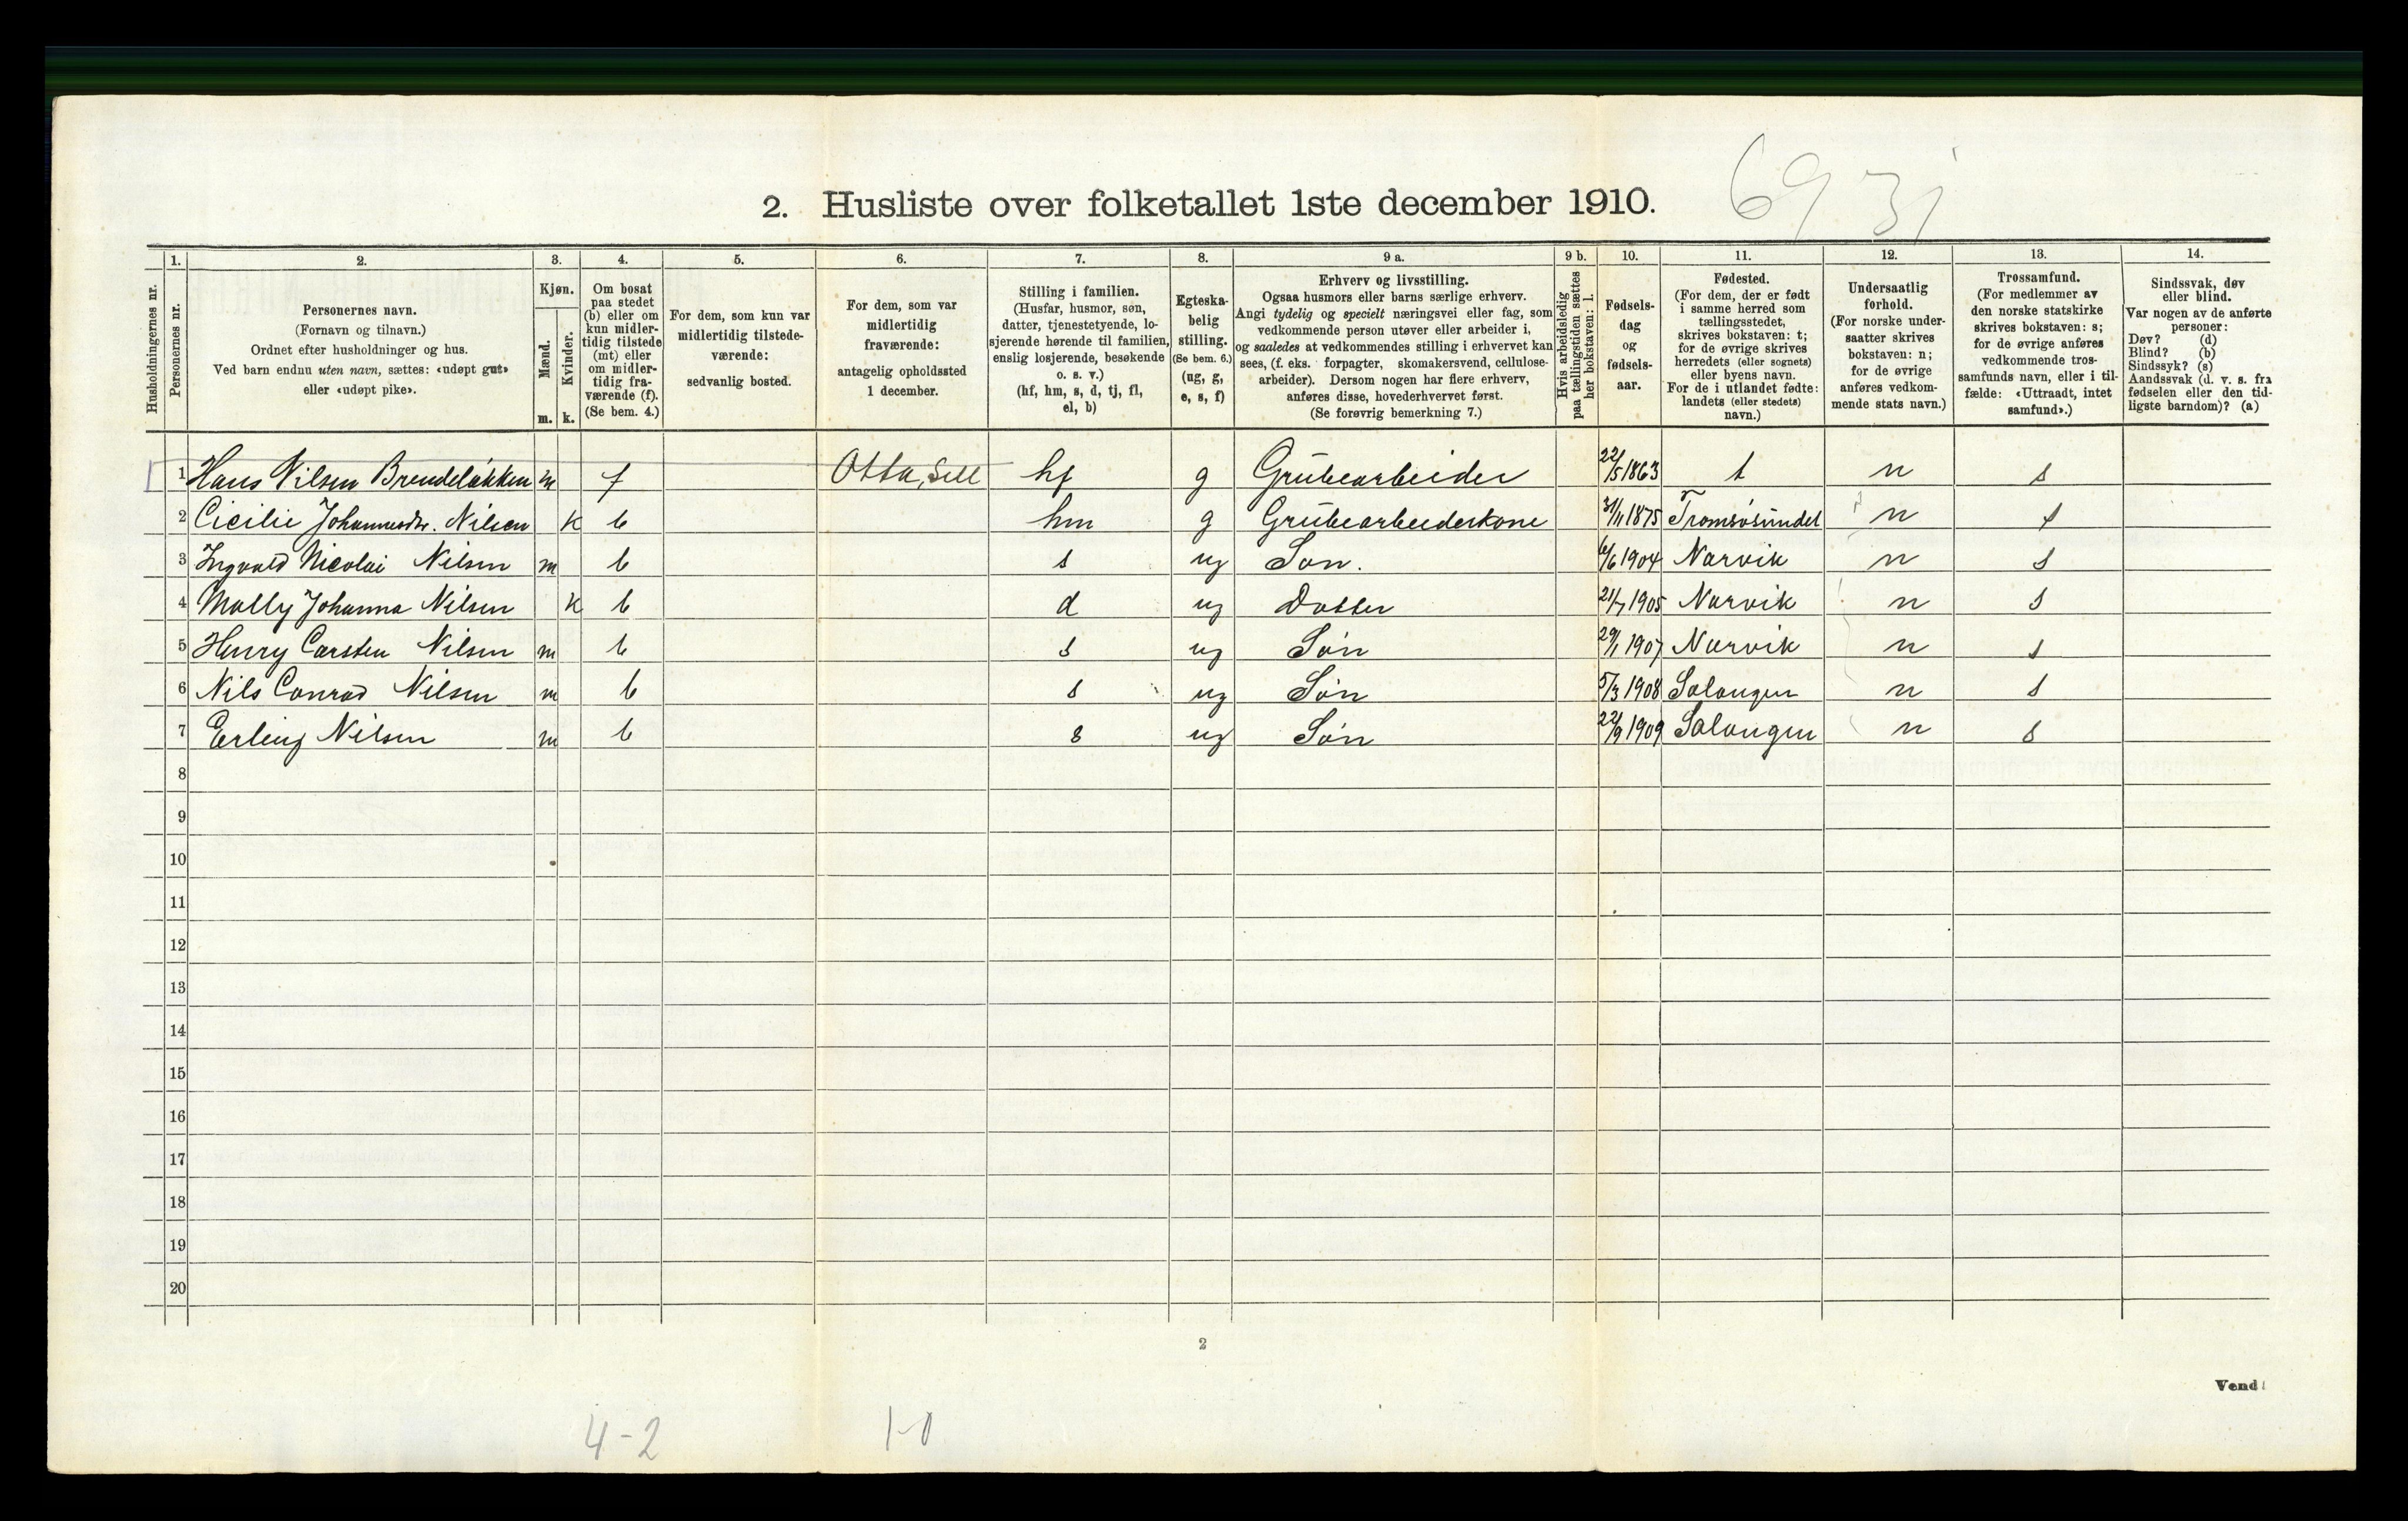 69 31
2. Husliste over folketallet 1ste december 1910.
Husholdningernes nr.
1.
Personernes nr.
2.
Personernes navn.
(Fornavn og tilnavn.)
Ordnet efter husholdninger og hus.
Ved barn endnu uten navn, sættes: «udøpt gut»
eller «udøpt pike».
3.
Kjøn.
Mænd.
m.
Kvinder.
k.
4.
Om bosat
paa stedet
(b) eller om
kun midler-
tidig tilstede
(mt) eller
om midler-
tidig fra-
værende (f).
(Se bem. 4.)
5.
For dem, som kun var
midlertidig tilstede-
værende:
sedvanlig bosted.
6.
For dem, som var
midlertidig
fraværende:
antagelig opholdssted
1 december.
7.
Stilling i familien.
(Husfar, husmor, søn,
datter, tjenestetyende, lo-
sjerende hørende til familien,
enslig losjerende, besøkende
o. s. v.)
(hf, hm, s, d, tj, fl,
el, b)
8.
Egteska-
belig
stilling.
(Se bem. 6.)
(ug, g,
e, s, f)
9 a.
Erhverv og livsstilling.
Ogsaa husmors eller barns særlige erhverv.
Angi tydelig og specielt næringsvei eller fag, som
vedkommende person utøver eller arbeider i,
og saaledes at vedkommendes stilling i erhvervet kan
sees, (f. eks. forpagter, skomakersvend, cellulose-
arbeider). Dersom nogen har flere erhverv,
anføres disse, hovederhvervet først.
(Se forøvrig bemerkning 7.)
9 b.
Hvis arbeidsledig
paa tællingstiden sættes
her bokstaven: l.
10.
Fødsels-
dag
og
fødsels-
aar.
11.
Fødested.
(For dem, der er født
i samme herred som
tællingsstedet,
skrives bokstaven: t;
for de øvrige skrives
herredets (eller sognets)
eller byens navn.
For de i utlandet fødte:
landets (eller stedets)
navn.)
12.
Undersaatlig
forhold.
(For norske under-
saatter skrives
bokstaven: n;
for de øvrige
anføres vedkom-
mende stats navn.)
13.
Trossamfund.
(For medlemmer av
den norske statskirke
skrives bokstaven: s;
for de øvrige anføres
vedkommende tros-
samfunds navn, eller i til-
fælde: «Uttraadt, intet
samfund».)
14.
Sindssvak, døv
eller blind.
Var nogen av de anførte
personer:
Døv? (d)
Blind? (b)
Sindssyk? (s)
Aandssvak (d. v. s. fra
fødselen eller den tid-
ligste barndom)? (a)
1 Hans Nilsen Brendeløkken m f Otta, Sell hf g Grubearbeider 22/5 1863 t n s
2 Cicilie Johannesdr. Nilsen k b hm g Grubearbeiderkone 31/11 1875 Tromsösundet n s
3 Ingvald Nicolai Nilsen m b s ug Søn. 6/6 1904 Narvik n s
4 Molly Johanna Nilsen k b d ug Datter 21/7 1905 Narvik n s
5 Henry Carsten Nilsen m b s ug Søn 29/1 1907 Narvik n s
6 Nils Conrad Nilsen m b s ug Søn 5/3 1908 Salangen n s
7 Erling Nilsen m b s ug Søn 22/9 1909 Salangen n s
8
9
10
11
12
13
14
15
16
17
18
19
20
2
Vend!
4-2 1-0